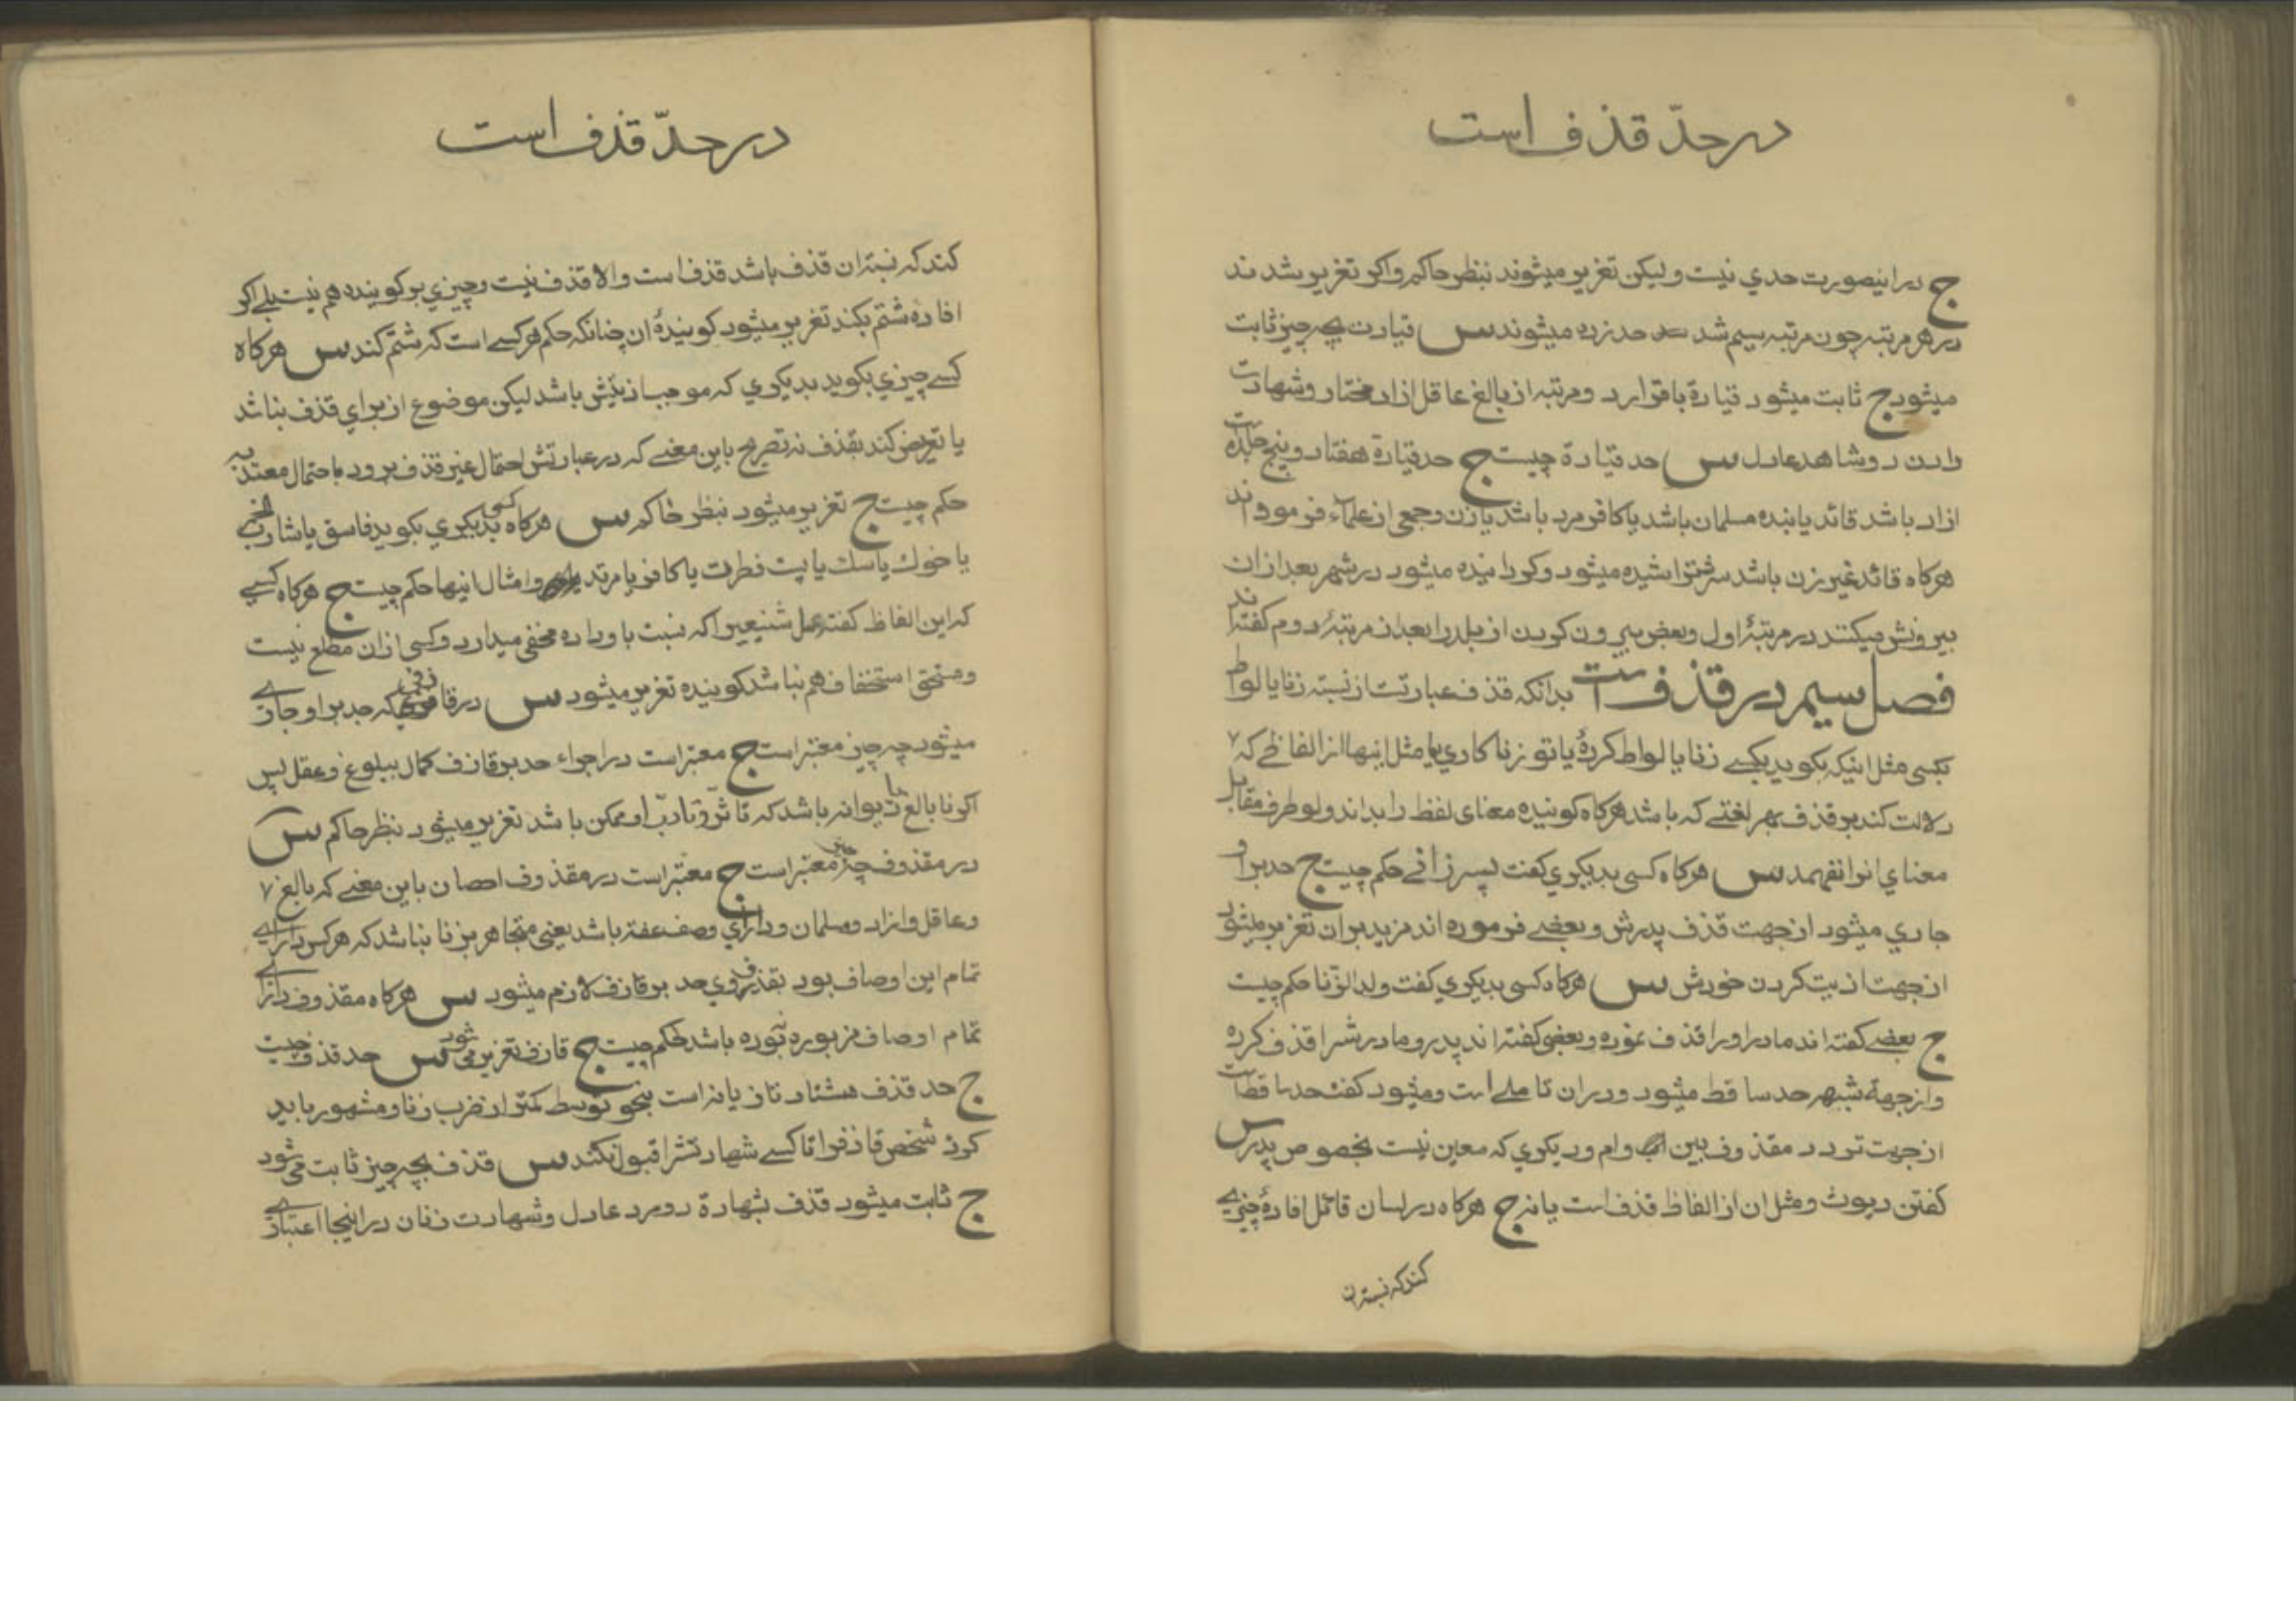 در حدّ قذف است
ج در اینصورت حدي نیست ولیکن تعزیر میشوند بنظر حاکم واکر تعزیر شدند
در هر مرتبه چون مرتبه سیم شد حد زده میشوند س قیادت بچه چیز ثابت
میشود ج ثابت میشود قیادة باقرار دو مرتبه از بالغ عاقل ازاد مختار وشهادت
دادن دو شاهد عادل س حد قیادة چیست ج حد قیادة هفتاد وپنج جلده است
ازاد باشد قائد یا بنده مسلمان باشد یا کافر مرد باشد یا زن وجمعی از علماء فرموده اند
هرکاه قائد غیر زن باشد سرش تراشیده میشود وکردانیده میشود در شهر بعد ازان
بیرونش میکنند در مرتبهٔ اول وبعض بیرون کردن از بلد را بعد از مرتبهٔ دوم کفته اند
فصل سیم در قذف است بدانکه قذف عبارتست از نسبة زنا یا لواط
بکسی مثل اینکه بکوید بکسے زنا یا لواط کردهٔ یا تو زنا کاري یا مثل اینها از الفاظے که
دلالت کند بر قذف بهر لغتے که باشد هرکاه کوینده معنای لفظ را بداند ولو طرف مقابل
معناي انرا نفهمد س هرکاه کسی بدیکري کفت پسر زانے حکم چیست ج حد بر او
جاري میشود از جهت قذف پدرش وبعضے فرموده اند مزید بران تعزیر میشود
از جهت اذیت کردن خودش س هرکاه کسی بدیکري کفت ولد الزّنا حکم چیست
ج بعضے کفته اند مادر او را قذف نموده وبعضی کفته اند پدر و مادرش را قذف کرده
واز جهة شبهه حد ساقط میشود ودران تاملے است ومیشود کفت حد ساقط است
از جهت تردد مقذوف بین اب وام ودیکري که معین نیست بخصوص پدر س
کفتن دیوث ومثل ان از الفاظ قذف است یا نه ج هرکاه در لسان قائل افادهٔ چیزے
کند که نسبة ان
در حدّ قذف است
کند که نسبة ان قذف باشد قذف است والا قذف نیست وچیزي بر کوینده هم نیست بلے اکر
افاده شتم بکند تعزیر میشود کویندهٔ ان چنانکه حکم هر کسے است که شتم کند س هرکاه
کسے چیزي بکوید بدیکري که موجب اذیتش باشد لیکن موضوع از براي قذف نباشد
یا تعریض کند بقذف نه تصریح باین معنے که در عبارتش احتمال غیر قذف برود باحتمال معتد به
حکم چیست ج تعزیر میشود بنظر حاکم س هرکاه کسی بدیکري بکوید فاسق یا شارب الخمر
یا خوك یا سك یا پست فطرت یا کافر یا مرتد وامثال اینها حکم چیست ج هرکاه کسے
که این الفاظ کفته عمل شنیعیرا که نسبت باو داده مخفی میدارد وکسی ازان مطلع نیست
ومستحق استخفاف هم نباشد کوینده تعزیر میشود س در قاذفی که حد بر او جارے
میشود چه چیز معتبر است ج معتبر است در اجراء حد بر قاذف کمال ببلوغ وعقل پس
اکر نا بالغ یا دیوانه باشد که تاثّر وتادّب او ممکن باشد تعزیر میشود بنظر حاکم س
در مقذوف چه چیز معتبر است ج معتبر است در مقذوف احصان باین معنے که بالغ
وعاقل وازاد ومسلمان وداراي وصف عفة باشد یعنی متجاهر بزنا نباشد که هر کس دارایے
تمام این اوصاف بود بقذف وي حد بر قاذف لازم میشود س هرکاه مقذوف داراے
تمام اوصاف مزبوره نبوده باشد حکم چیست ج قاذف تعزیر می شود س حد قذف چیست
ج حد قذف هشتاد تازیانه است بنحو توسط کمتر از ضرب زنا ومشهور باید
کرد شخص قاذف را تا کسے شهادتش را قبول نکند س قذف بچه چیز ثابت می شود
ج ثابت میشود قذف بشهادة دو مرد عادل وشهادت زنان در اینجا اعتبارے